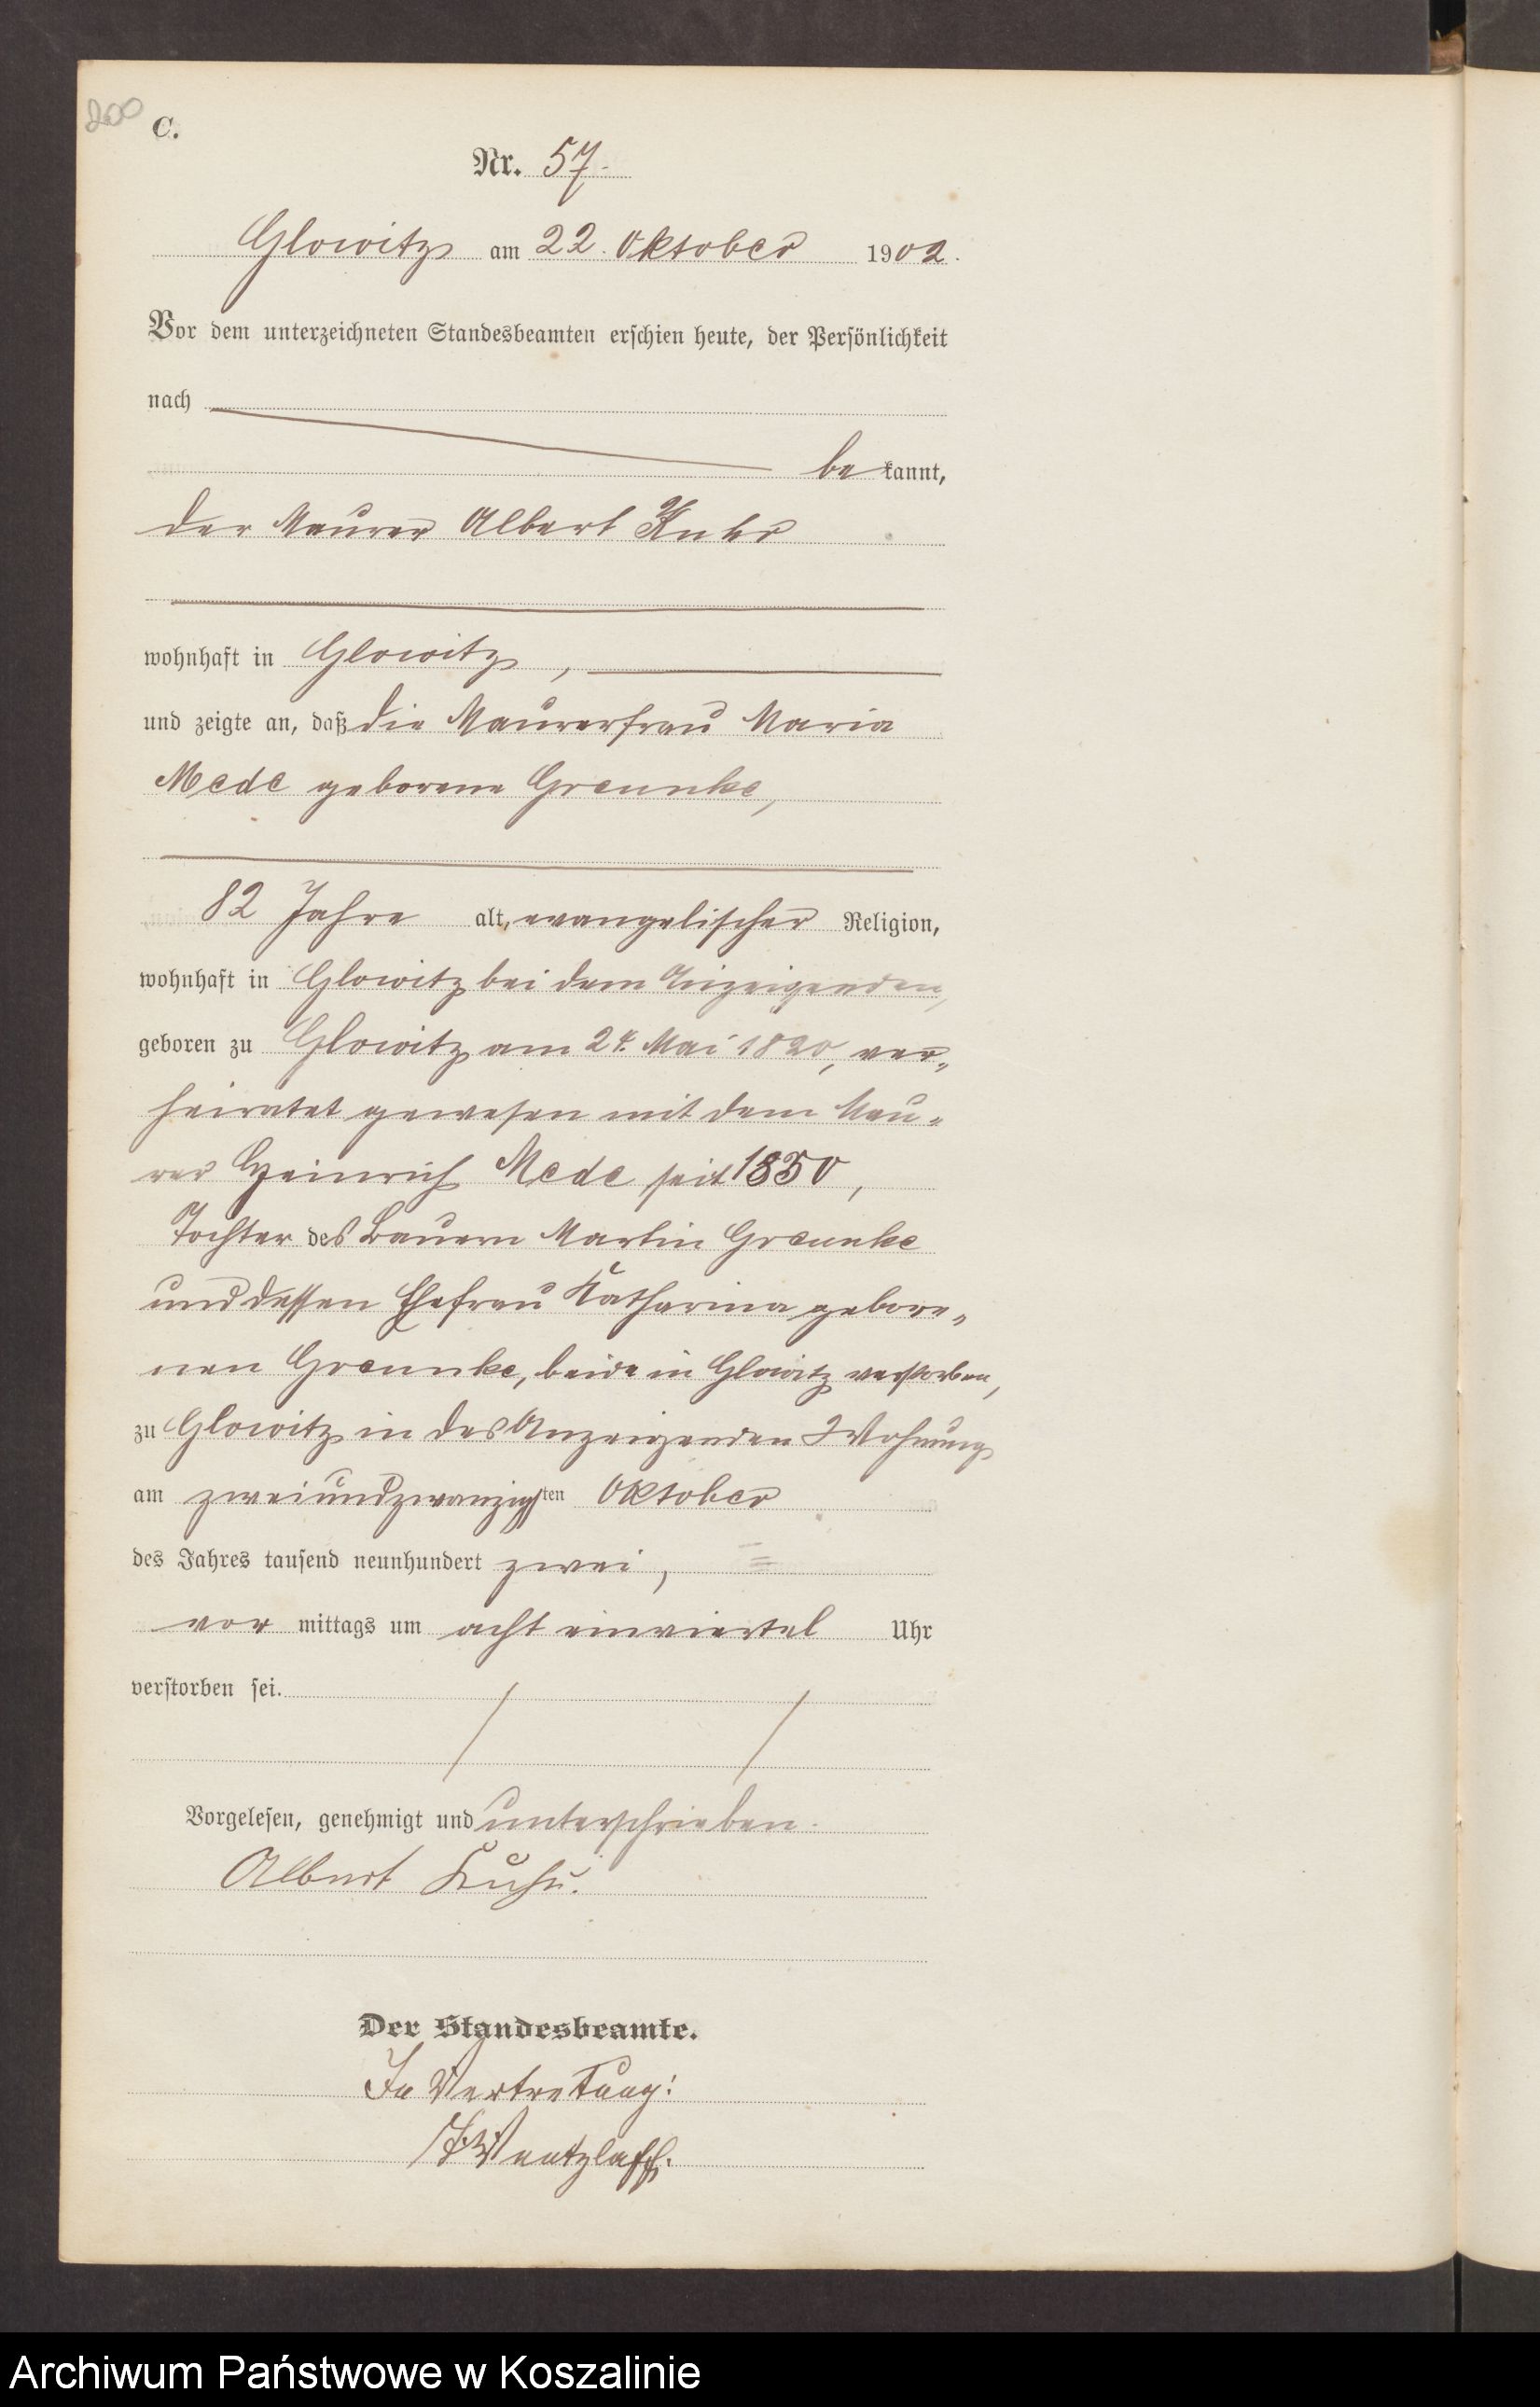 200
C.
Nr. 57.
Glowitz am 22. Oktober 1902.
Vor dem unterzeichneten Standesbeamten erschien heute, der Persönlichkeit
nach
be kannt,
der Maurer Albert Kuhr
wohnhaft in Glowitz,
und zeigte an, daß die Maurerfrau Maria
Mede geborene Greunke,
82 Jahre alt, evangelischer Religion,
wohnhaft in Glowitz bei dem Anzeigenden,
geboren zu Glowitz am 24. Mai 1820, ver„
heiratet gewesen mit dem Mau„
rer Heinrich Mede seit 1850,
Tochter des Bauern Martin Greunke
und dessen Ehefrau Katharina gebore„
nen Greunke, beide in Glowitz verstorben,
zu Glowitz in des Anzeigenden Wohnung
am zweiundzwanzigsten Oktober
des Jahres tausend neunhundert zwei,
vor mittags um acht einviertel Uhr
verstorben sei.
Vorgelesen, genehmigt und unterschrieben.
Albert Kuhr.
Der Standesbeamte.
In Vertretung:
Wentzlaff.
Archiwum Państwowe w Koszalinie